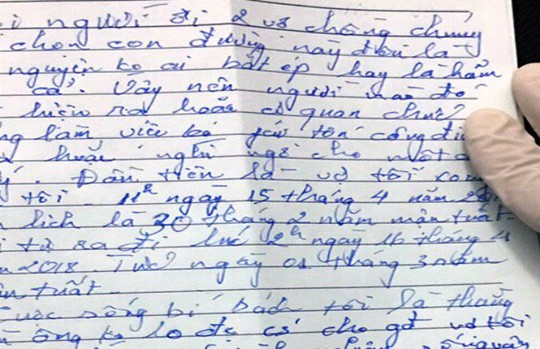 người đi 2 vợ chồng chúng
chọn con đường này đều là
nguyện ko ai bắt ép hay là hãm
cả. Vậy nên người nào đó
hiện ra hoặc cơ quan chức
làm việc bỏ yếu tố công
hoặc nghi ngờ cho một
Đầu tiên là vợ tôi
tôi. 11h ngày 15 tháng 4 năm
lịch là 30 tháng 2 năm mậu tuất
từ ra đi lúc 2h ngày 16 tháng 4
2018 Tức ngày 01 tháng 3 năm
tuất
cuộc sống bí bách tôi là thằng
ông ko lo đc cho vợ tôi